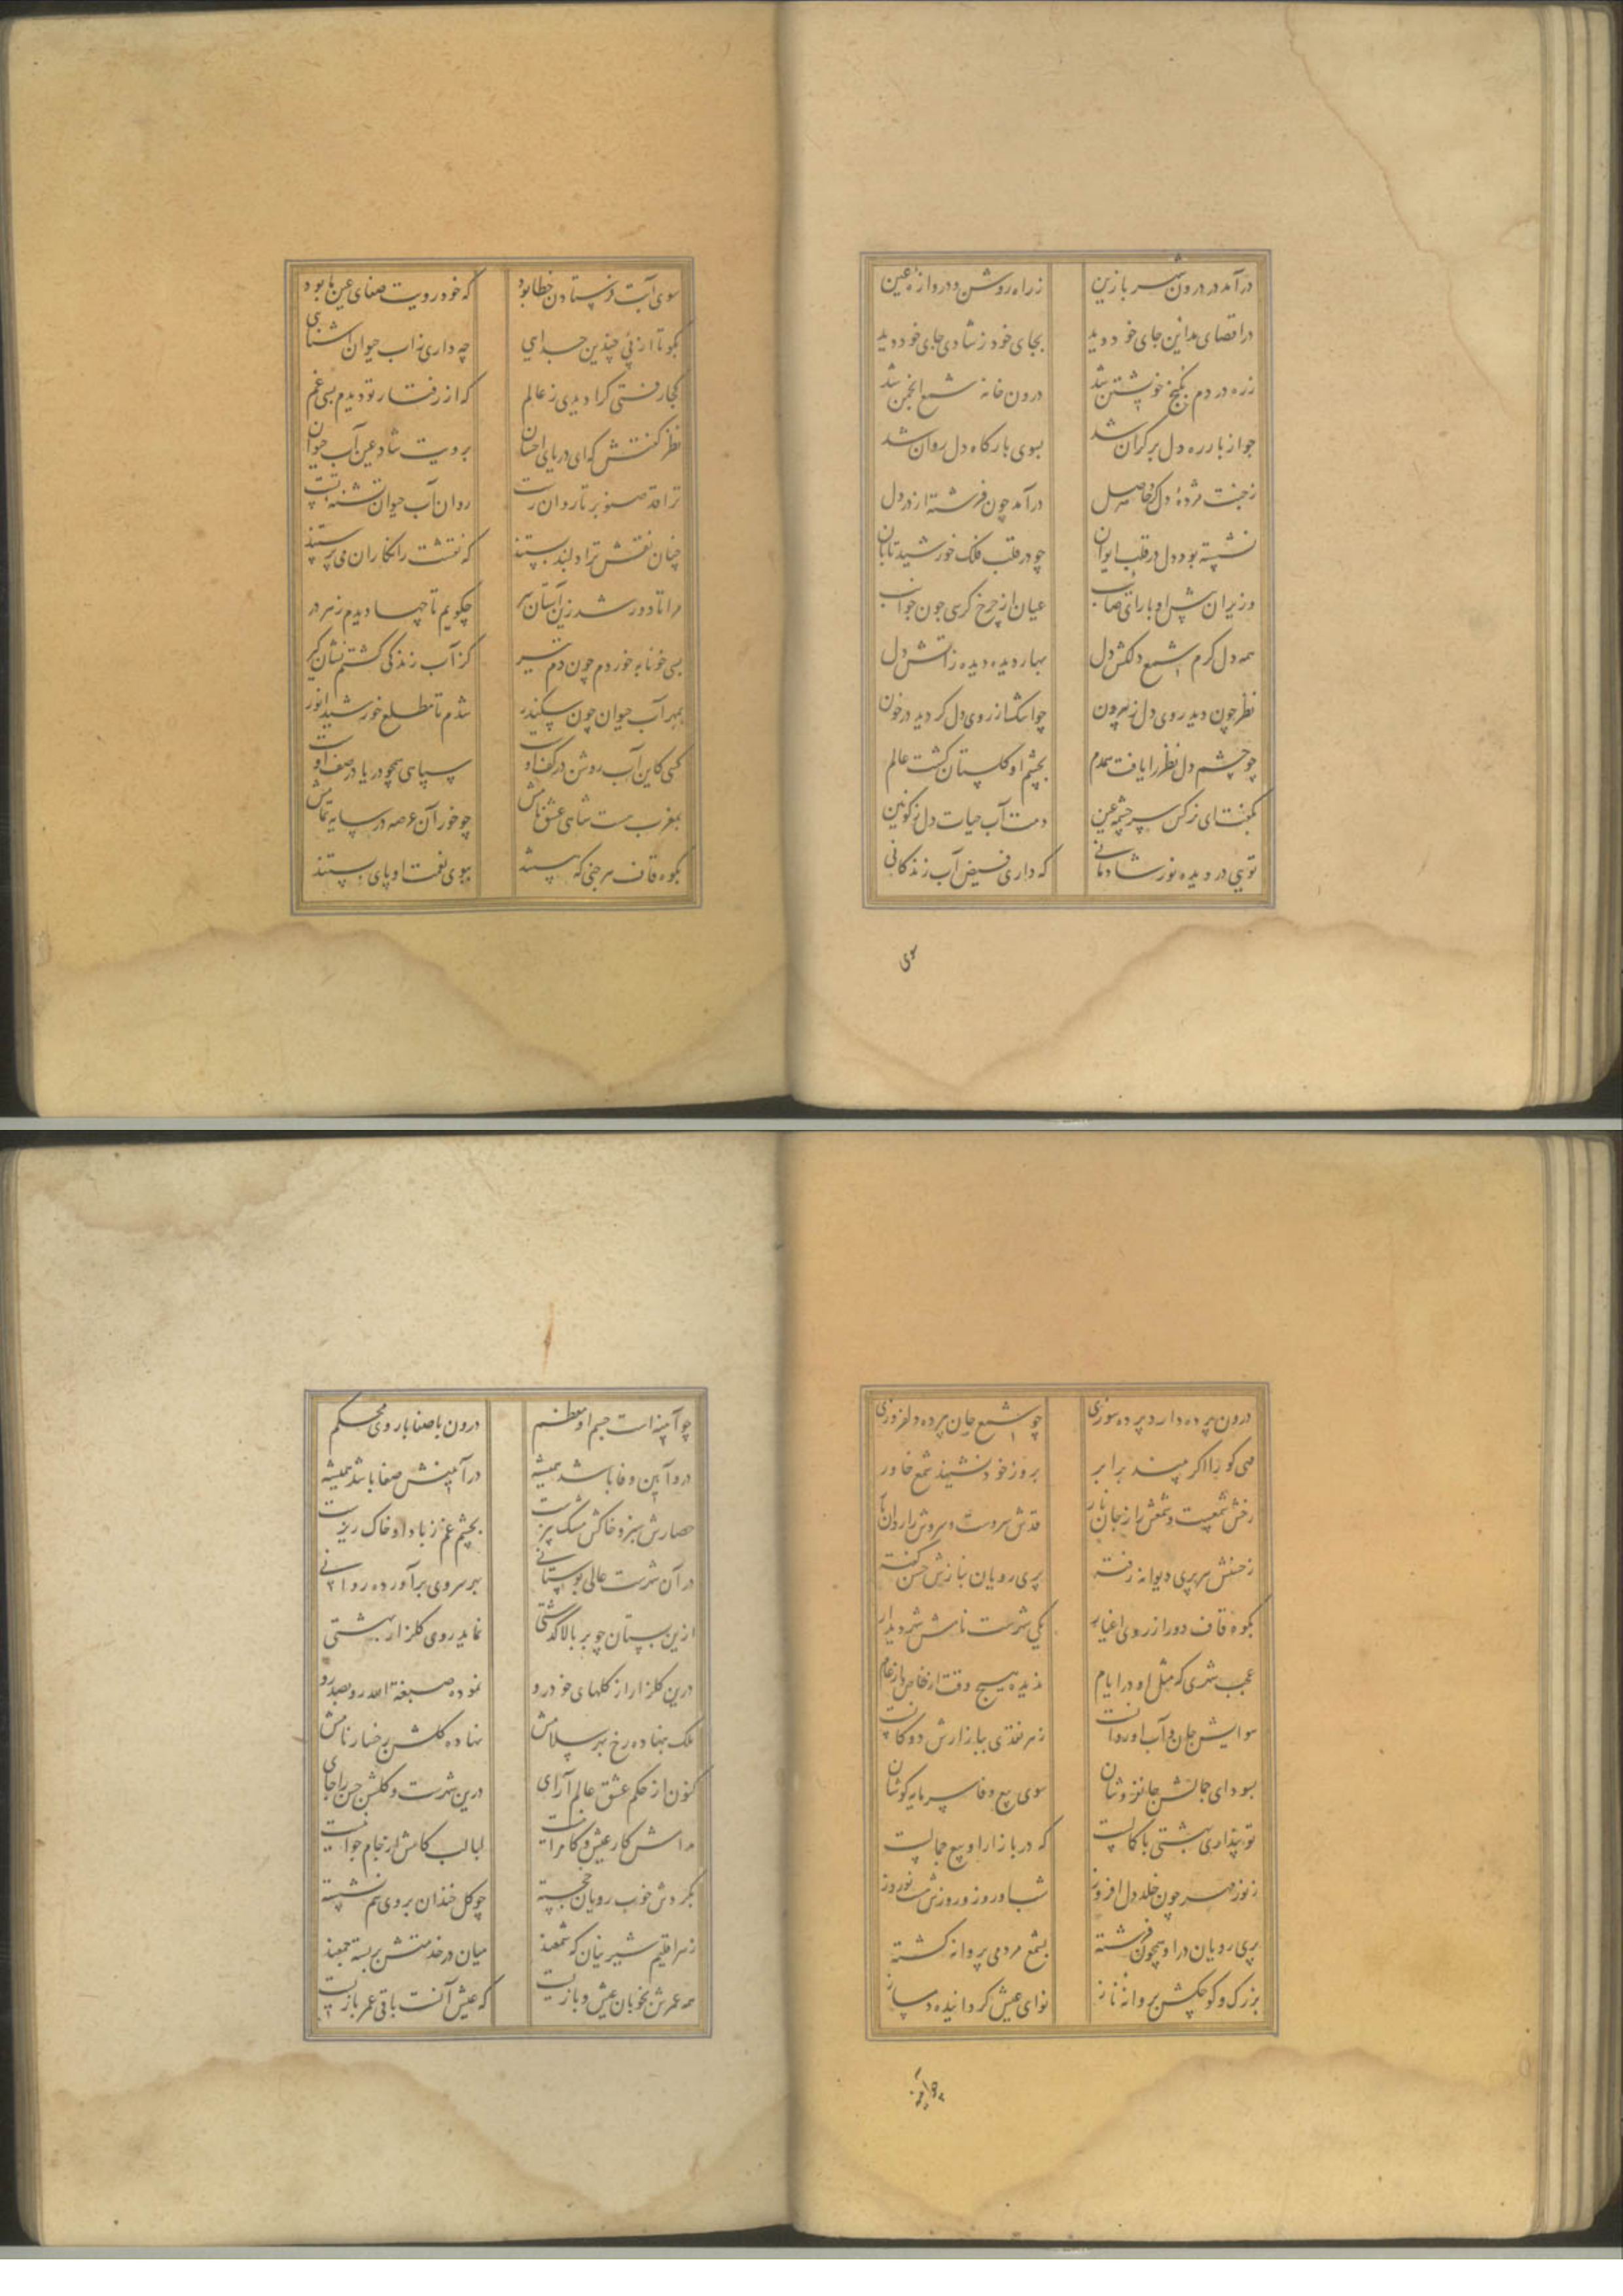 درآمد در درون شهر باز زین زراه روشن و دروازهٔ عین
در اقصای مداین جای خود دید بجای خود ز شادی جای خود دید
زره در دم بکنج خویشتن شد درون خانه شمع انجمن شد
چو از بار ره دل بر کران شد بسوی بارگاه دل روان شد
زجنت مژدهٔ دل کرده حاصل درآمد چون فرشته از در دل
نشسته بود دل در قلب ایوان چو در قلب فلک خورشید تابان
وزیران پس او با رای صایب عیان از چرخ کرسی چون کواکب
همه دل کرم شمع دلکش دل بهار دیده دیده ز آتش دل
نظر چون دید روی دل ز بیرون چو اشک از روی دل کردید در خون
چو چشم دل نظر را یافت همدم بچشم او کلستان کشت عالم
بکفت ای نرکس سرچشمهٔ عین دمت آب حیات دل ز کونین
تویی در دیده نور شادمانی که داری فیض آب زندکانی
سوی
سوی آبت فرستادن خطا بود که خود رویت صفای عین ما بود
بکو تا از پی چندین جدایی چه داری ز آب حیوان آشنایی
کجا رفتی کرا دیدی ز عالم که از رفتار تو دیدم بسی غم
نظر کفتش که ای دریای احسان برویت شاد عین آب حیوان
ترا قد صنوبر تا روانست روان آب حیوان تشنه
چنان نقش ترا دلبند بستند که نقشت را نکاران می پرستند
مرا تا دور شد زین آستان سر چکویم تا چها دیدم ز هر در
بسی خونابه خوردم چون دم تیر کز آب زندکی کشتم نشان کیر
بمهر آب حیوان چون سکندر شدم تا مطلع خورشید انور
کسی کاین آب روشن در کف اوست سپاهی همچو دریا در صف اوست
بمغرب هست شاهی عشق نامش چو خور آن عرصه در سایه تمامش
بکوه قاف هر جنی که هستند ببوی نعت او پای بستند
درون پرده دارد پرده سوزی چو شمع جان پرده دلفروزی
مهی کو را اکر بیند برابر بروز خود نشیند شمع خاور
رخش شمعیست و شمعش را ز جان تار قدش سروست و سروش را روان بار
زحسنش هر پری دیوانه رفته پری رویان بنازش حسن کفته
بکوه قاف دور از روی اغیار یکی شهرست نامش شهر دیدار
عجب شهری که مثل او در ایام ندیده هیچ وقت از خاص و از عام
هوایش جان و آب او روانست ز هر نقدی ببازارش دوکانست
بسودای جمالش جانفروشان سوی بیع وفا سرمایه کوشان
تو پنداری بهشتی با کمالست که در بازار او بیع جمالست
ز نور مهر چون خلد دل افروز شب او روز و روزش هست نوروز
پری رویان در او همچون فرشته بشمع مردمی پروانه کشته
بزرک و کوچکش پروانهٔ ناز نوای عیش کردانیده دمساز
چو آینه
چو آینه است جسم او معظم درون با صفا باروی محکم
درو آیین وفا باشد همیشه در آیینش صفا باشد همیشه
حصارش سبز و خاکش مشک بیزست بچشم غم ز باد او خاک ریزست
در آن شهرست عالی بوستانی بهر سروی برآورده روانی
ازین بستان چو بر بالا کذشتی نماید روی کلزار بهشتی
درین کلزار از کلهای خودرو نموده صبغة الله رو بصد رو
ملک بنهاده رخ بهر سلامش نهاده کلشن رخسار نامش
کنون از حکم عشق عالم آرای درین شهرست و کلشن حسن را جای
مدامش کار عیش و کامرانیست لبالب کامش از جام جوانیست
بکردش خوب رویان خجسته چو کل خندان بروی هم نشسته
ز هر اقلیم شیرینان که شمعند میان در خدمتش بربسته جمعند
همه عمرش بخوبان عیش و بازیست که عیش آنست باقی عمر بازیست